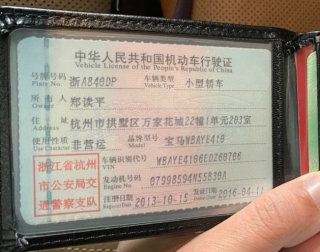 中华人民共和国机动车行驶证
Vehicle License of the People's Republic of China
号牌号码 浙A848DP 车辆类型 小型轿车
Plate No. Vehicle Type
所有人 郑读平
Owner
住址 杭州市拱墅区万家花城22幢1单元203室
Address
使用性质 非营运 品牌型号 宝马WBAYE410
Use Character Model
浙江省杭州
市公安局交
通警察支队
车辆识别代号
VIN
发动机号码
Engine No.
注册日期 2013-10-15 发证日期 2016-04-11
Register Date Issue Date